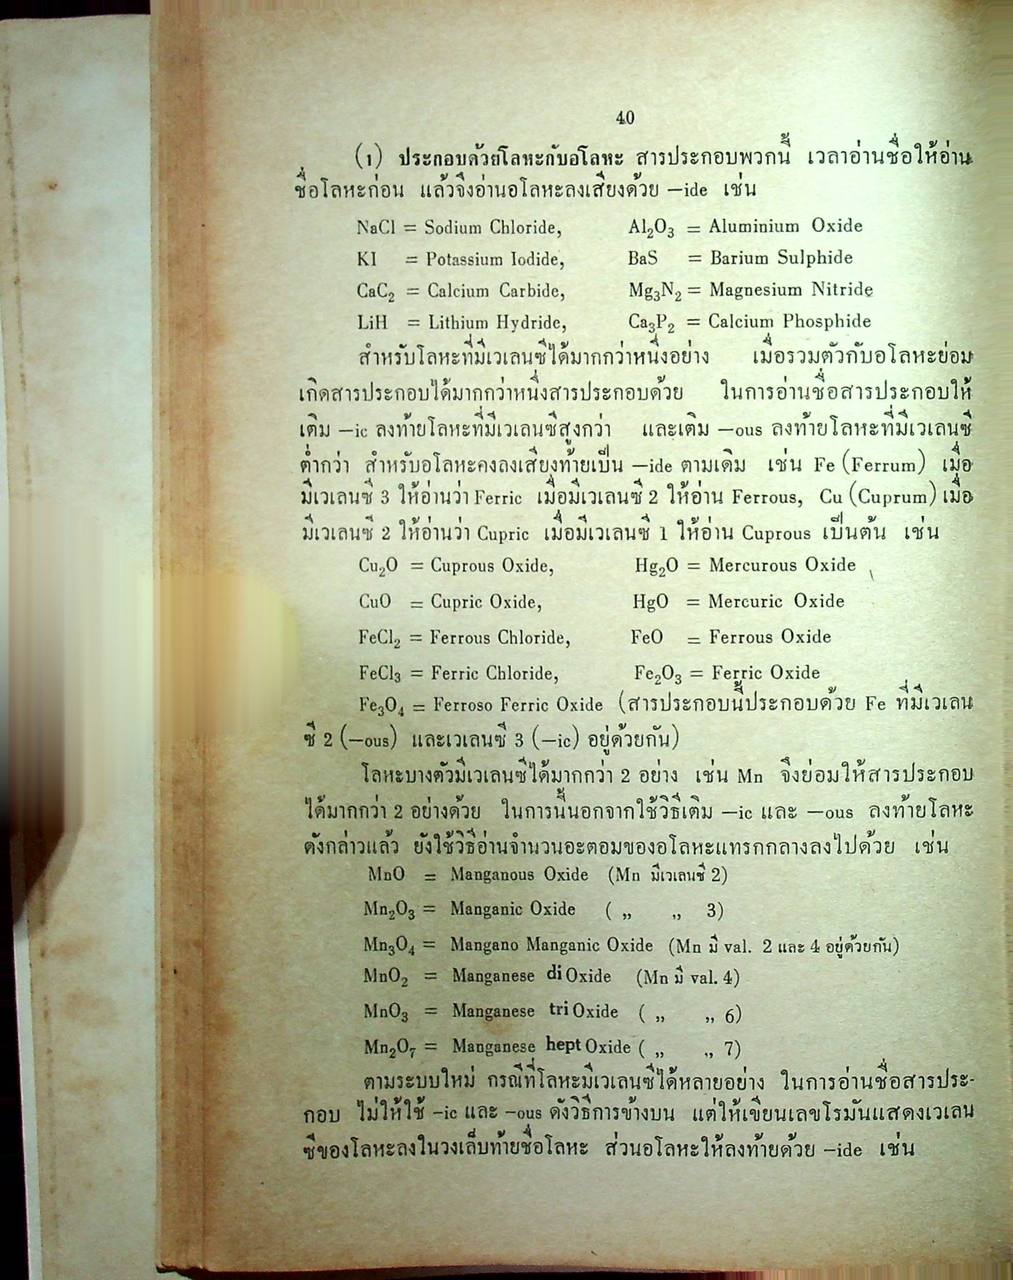 40
(๑) ประกอบด้วยโลหะกับอโลหะ สารประกอบพวกนี้ เวลาอ่านชื่อให้อ่าน
ชื่อโลหะก่อน แล้วจึงอ่านอโลหะลงเสียงด้วย –ide เช่น
NaCl = Sodium Chloride, Al₂O₃ = Aluminium Oxide
KI = Potassium Iodide, BaS = Barium Sulphide
CaC₂ = Calcium Carbide, Mg₃N₂ = Magnesium Nitride
LiH = Lithium Hydride, Ca₃P₂ = Calcium Phosphide
สำหรับโลหะที่มีเวเลนซีได้มากกว่าหนึ่งอย่าง เมื่อรวมตัวกับอโลหะย่อม
เกิดสารประกอบได้มากกว่าหนึ่งสารประกอบด้วย ในการอ่านชื่อสารประกอบให้
เติม –ic ลงท้ายโลหะที่มีเวเลนซีสูงกว่า และเติม –ous ลงท้ายโลหะที่มีเวเลนซี
ต่ำกว่า สำหรับอโลหะคงลงเสียงท้ายเป็น –ide ตามเดิม เช่น Fe (Ferrum) เมื่อ
มีเวเลนซี 3 ให้อ่านว่า Ferric เมื่อมีเวเลนซี 2 ให้อ่าน Ferrous, Cu (Cuprum) เมื่อ
มีเวเลนซี 2 ให้อ่านว่า Cupric เมื่อมีเวเลนซี 1 ให้อ่าน Cuprous เป็นต้น เช่น
Cu₂O = Cuprous Oxide, Hg₂O = Mercurous Oxide
CuO = Cupric Oxide, HgO = Mercuric Oxide
FeCl₂ = Ferrous Chloride, FeO = Ferrous Oxide
FeCl₃ = Ferric Chloride, Fe₂O₃ = Ferric Oxide
Fe₃O₄ = Ferroso Ferric Oxide (สารประกอบนี้ประกอบด้วย Fe ที่มีเวเลน
ซี 2 (–ous) และเวเลนซี 3 (–ic) อยู่ด้วยกัน)
โลหะบางตัวมีเวเลนซีได้มากกว่า 2 อย่าง เช่น Mn จึงย่อมให้สารประกอบ
ได้มากกว่า 2 อย่างด้วย ในการนี้นอกจากใช้วิธีเติม –ic และ –ous ลงท้ายโลหะ
ดังกล่าวแล้ว ยังใช้วิธีอ่านจำนวนอะตอมของอโลหะแทรกกลางลงไปด้วย เช่น
MnO = Manganous Oxide (Mn มีเวเลนซี 2)
Mn₂O₃ = Manganic Oxide ( „ „ 3)
Mn₃O₄ = Mangano Manganic Oxide (Mn มี val. 2 และ 4 อยู่ด้วยกัน)
MnO₂ = Manganese di Oxide (Mn มี val. 4)
MnO₃ = Manganese tri Oxide ( „ „ 6)
Mn₂O₇ = Manganese hept Oxide ( „ „ 7)
ตามระบบใหม่ กรณีที่โลหะมีเวเลนซีได้หลายอย่าง ในการอ่านชื่อสารประ-
กอบ ไม่ให้ใช้ –ic และ –ous ดังวิธีการข้างบน แต่ให้เขียนเลขโรมันแสดงเวเลน
ซีของโลหะลงในวงเล็บท้ายชื่อโลหะ ส่วนอโลหะให้ลงท้ายด้วย –ide เช่น